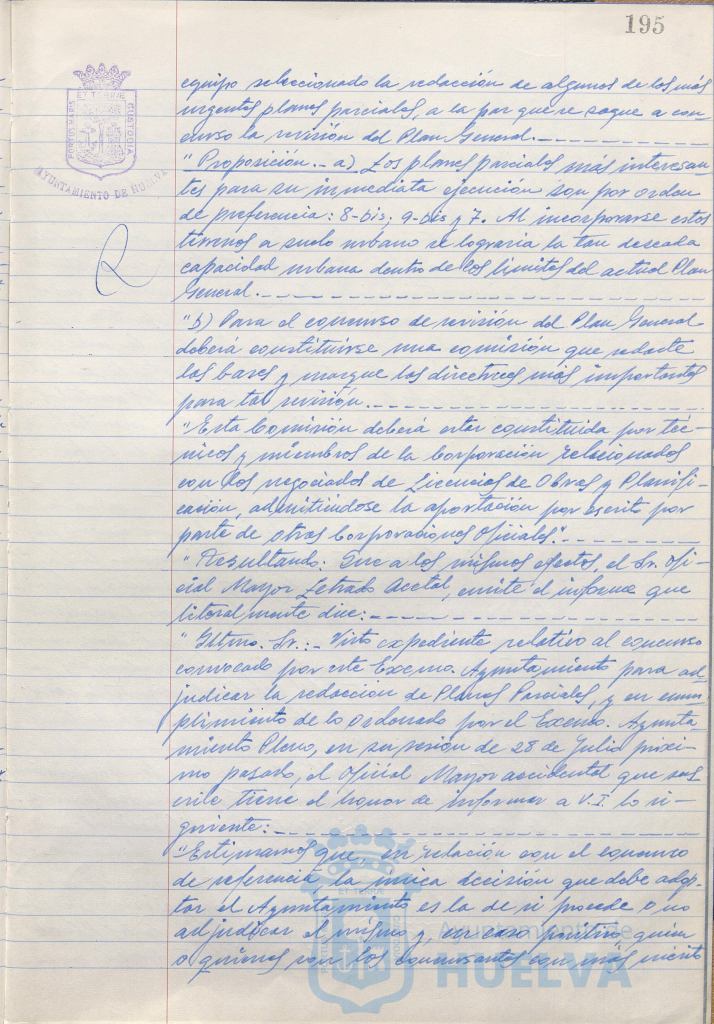 195
PORTUS MARIS ET TERRAE CUSTODIA
AYUNTAMIENTO DE HUELVA
equipo seleccionado la redacción de algunos de los más
urgentes planes parciales, a la par que se saque a con-
curso la revisión del Plan General.
"Proposición.- a) Los planes parciales más interesan-
tes para su inmediata ejecución son por orden
de preferencia: 8-bis; 9-bis y 7. Al incorporarse estos
terrenos a suelo urbano se lograría la tan deseada
capacidad urbana dentro de los límites del actual Plan
General.
"b) Para el concurso de revisión del Plan General
deberá constituirse una comisión que redacte
las bases y marque las directrices más importantes
para tal revisión.
"Esta Comisión deberá estar constituida por téc-
nicos y miembros de la Corporación relacionados
con los negociados de Licencias de Obras y Planifi-
cación, admitiéndose la aportación por escrito por
parte de otras Corporaciones Oficiales".
"Resultando: Que a los mismos efectos, el Sr. Ofi-
cial Mayor Letrado Acctal, emite el informe que
literalmente dice:
"Iltmo. Sr.:- Visto expediente relativo al concurso
convocado por este Excmo. Ayuntamiento para ad-
judicar la redacción de Planes Parciales, y en cum-
plimiento de lo ordenado por el Excmo. Ayunta-
miento Pleno, en su sesión de 28 de Julio próxi-
mo pasado, el Oficial Mayor accidental que sus-
cribe tiene el honor de informar a V.I. lo si-
guiente:
"Estimamos que, en relación con el concurso
de referencia, la única decisión que debe adop-
tar el Ayuntamiento es la de si procede o no
adjudicar el mismo y, en caso positivo, quien
o quienes son los concursantes con más mérito
ET TERRAE
Ayuntamiento de
HUELVA